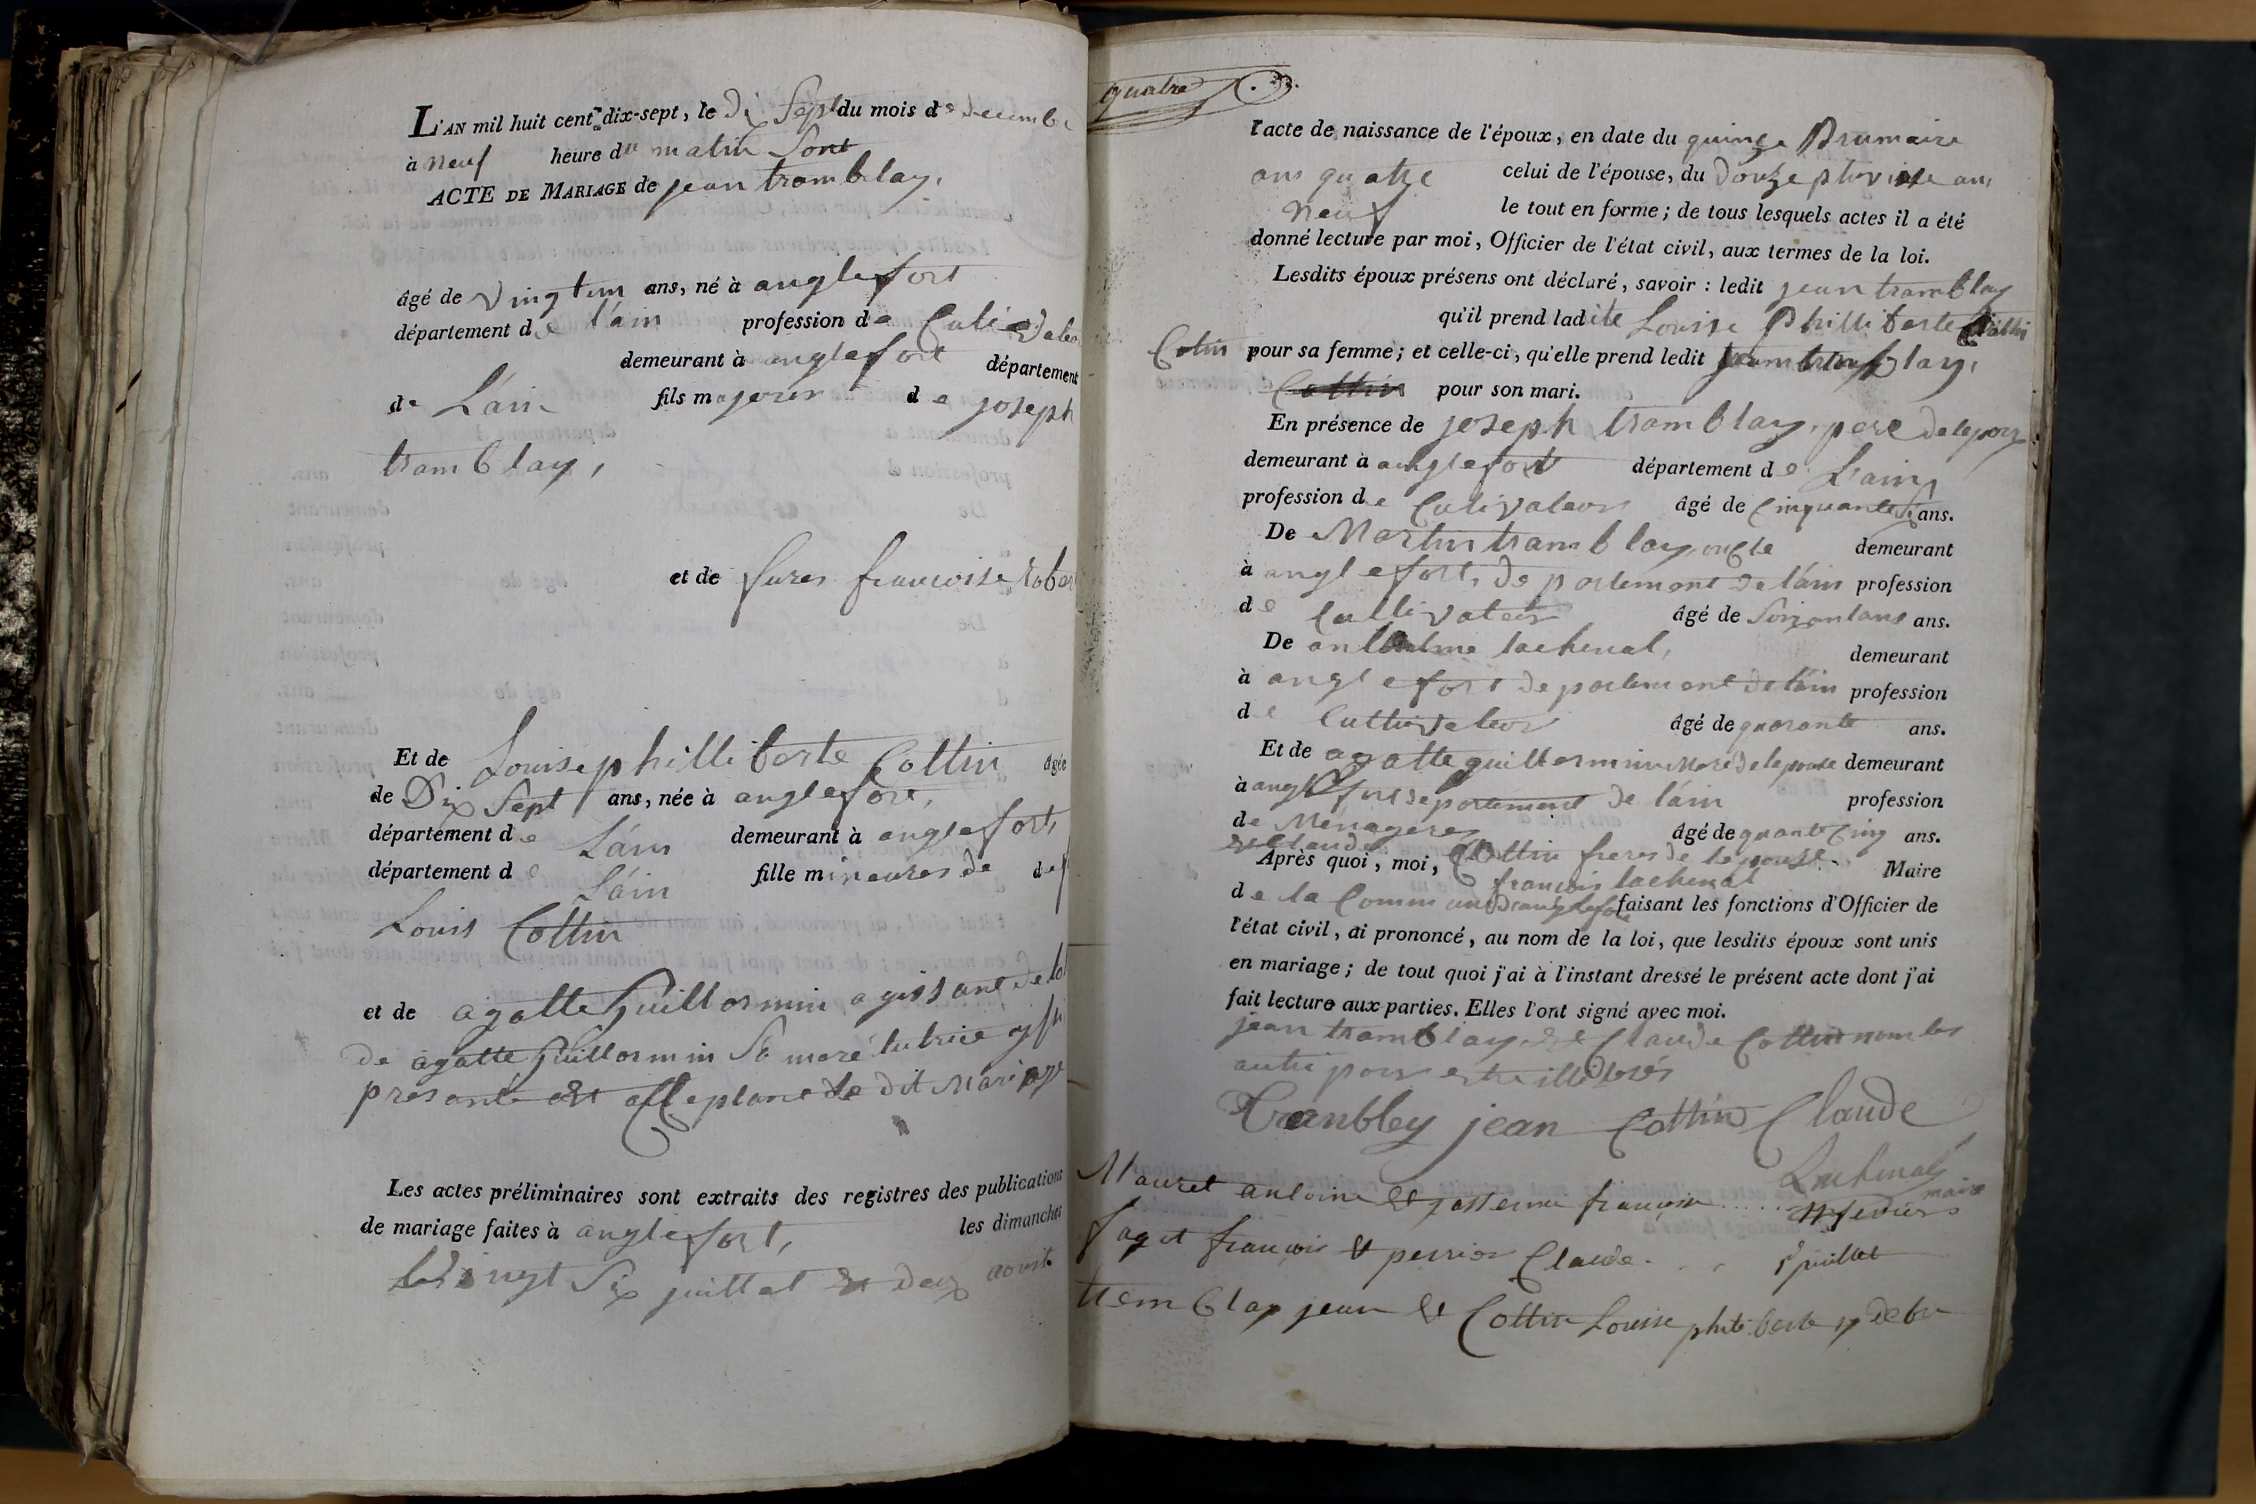 L'AN mil huit cent dix-sept, le di Sept du mois de decembre
à neuf heure du matin
ACTE DE MARIAGE de jean tramblay,
âgé de vingtun ans, né à anglefort
département de l'ain profession de
demeurant à anglefort département
de L'ain fils majeur de joseph
tramblay,
et de francoise
Et de Louise philliberte Cottin âgée
de Dix Sept ans, née à anglefort,
département de L'ain demeurant à anglefort,
département de L'ain fille mineures de de
Louis Cottin
et de agatte Guillermin agissant
de agatte Guillermin Sa mere tutrice
présante et le dit Mariage
Les actes préliminaires sont extraits des registres des publications
de mariage faites à anglefort, les dimanches
vingt Six juillet et deux aoust
quatre
l'acte de naissance de l'époux, en date du quinze Brumaire
ans quatre celui de l'épouse, du douze pluviose ans
neuf le tout en forme; de tous lesquels actes il a été
donné lecture par moi, Officier de l'état civil, aux termes de la loi.
Lesdits époux présens ont déclaré, savoir : ledit jean tramblay
qu'il prend ladite Louise Philliberte
Cotin pour sa femme; et celle-ci, qu'elle prend ledit jean tramblay,
Cottin pour son mari.
En présence de joseph tramblay, pere de lepoux
demeurant à anglefort département de L'ain,
profession de Cultivateur âgé de Cinquante ans.
De Martin tramblay oncle demeurant
à anglefort, departement de l'ain profession
de Cultivateur âgé de Soixantans ans.
De lachenal, demeurant
à anglefort departement de l'ain profession
de Cultivateur âgé de quarante ans.
Et de agatte guillermin mere de lepouse demeurant
à anglefort departement de l'ain profession
de Menagere âgé de quante Cinq ans.
et Claude
Après quoi, moi, Cottin frere de lepouse Maire
françois lachenal
de la Commune danglefort faisant les fonctions d'Officier de
l'état civil, ai prononcé, au nom de la loi, que lesdits époux sont unis
en mariage; de tout quoi j'ai à l'instant dressé le présent acte dont j'ai
fait lecture aux parties. Elles l'ont signé avec moi.
jean tramblay et Claude Cottin non les
autre pour estre
Trambley jean Cottin Claude
Lachenal
maire
antoine et françoise
fagot françois et perrier Claude juillet
tremblay jean et Cottin Louise philiberte 17 debre